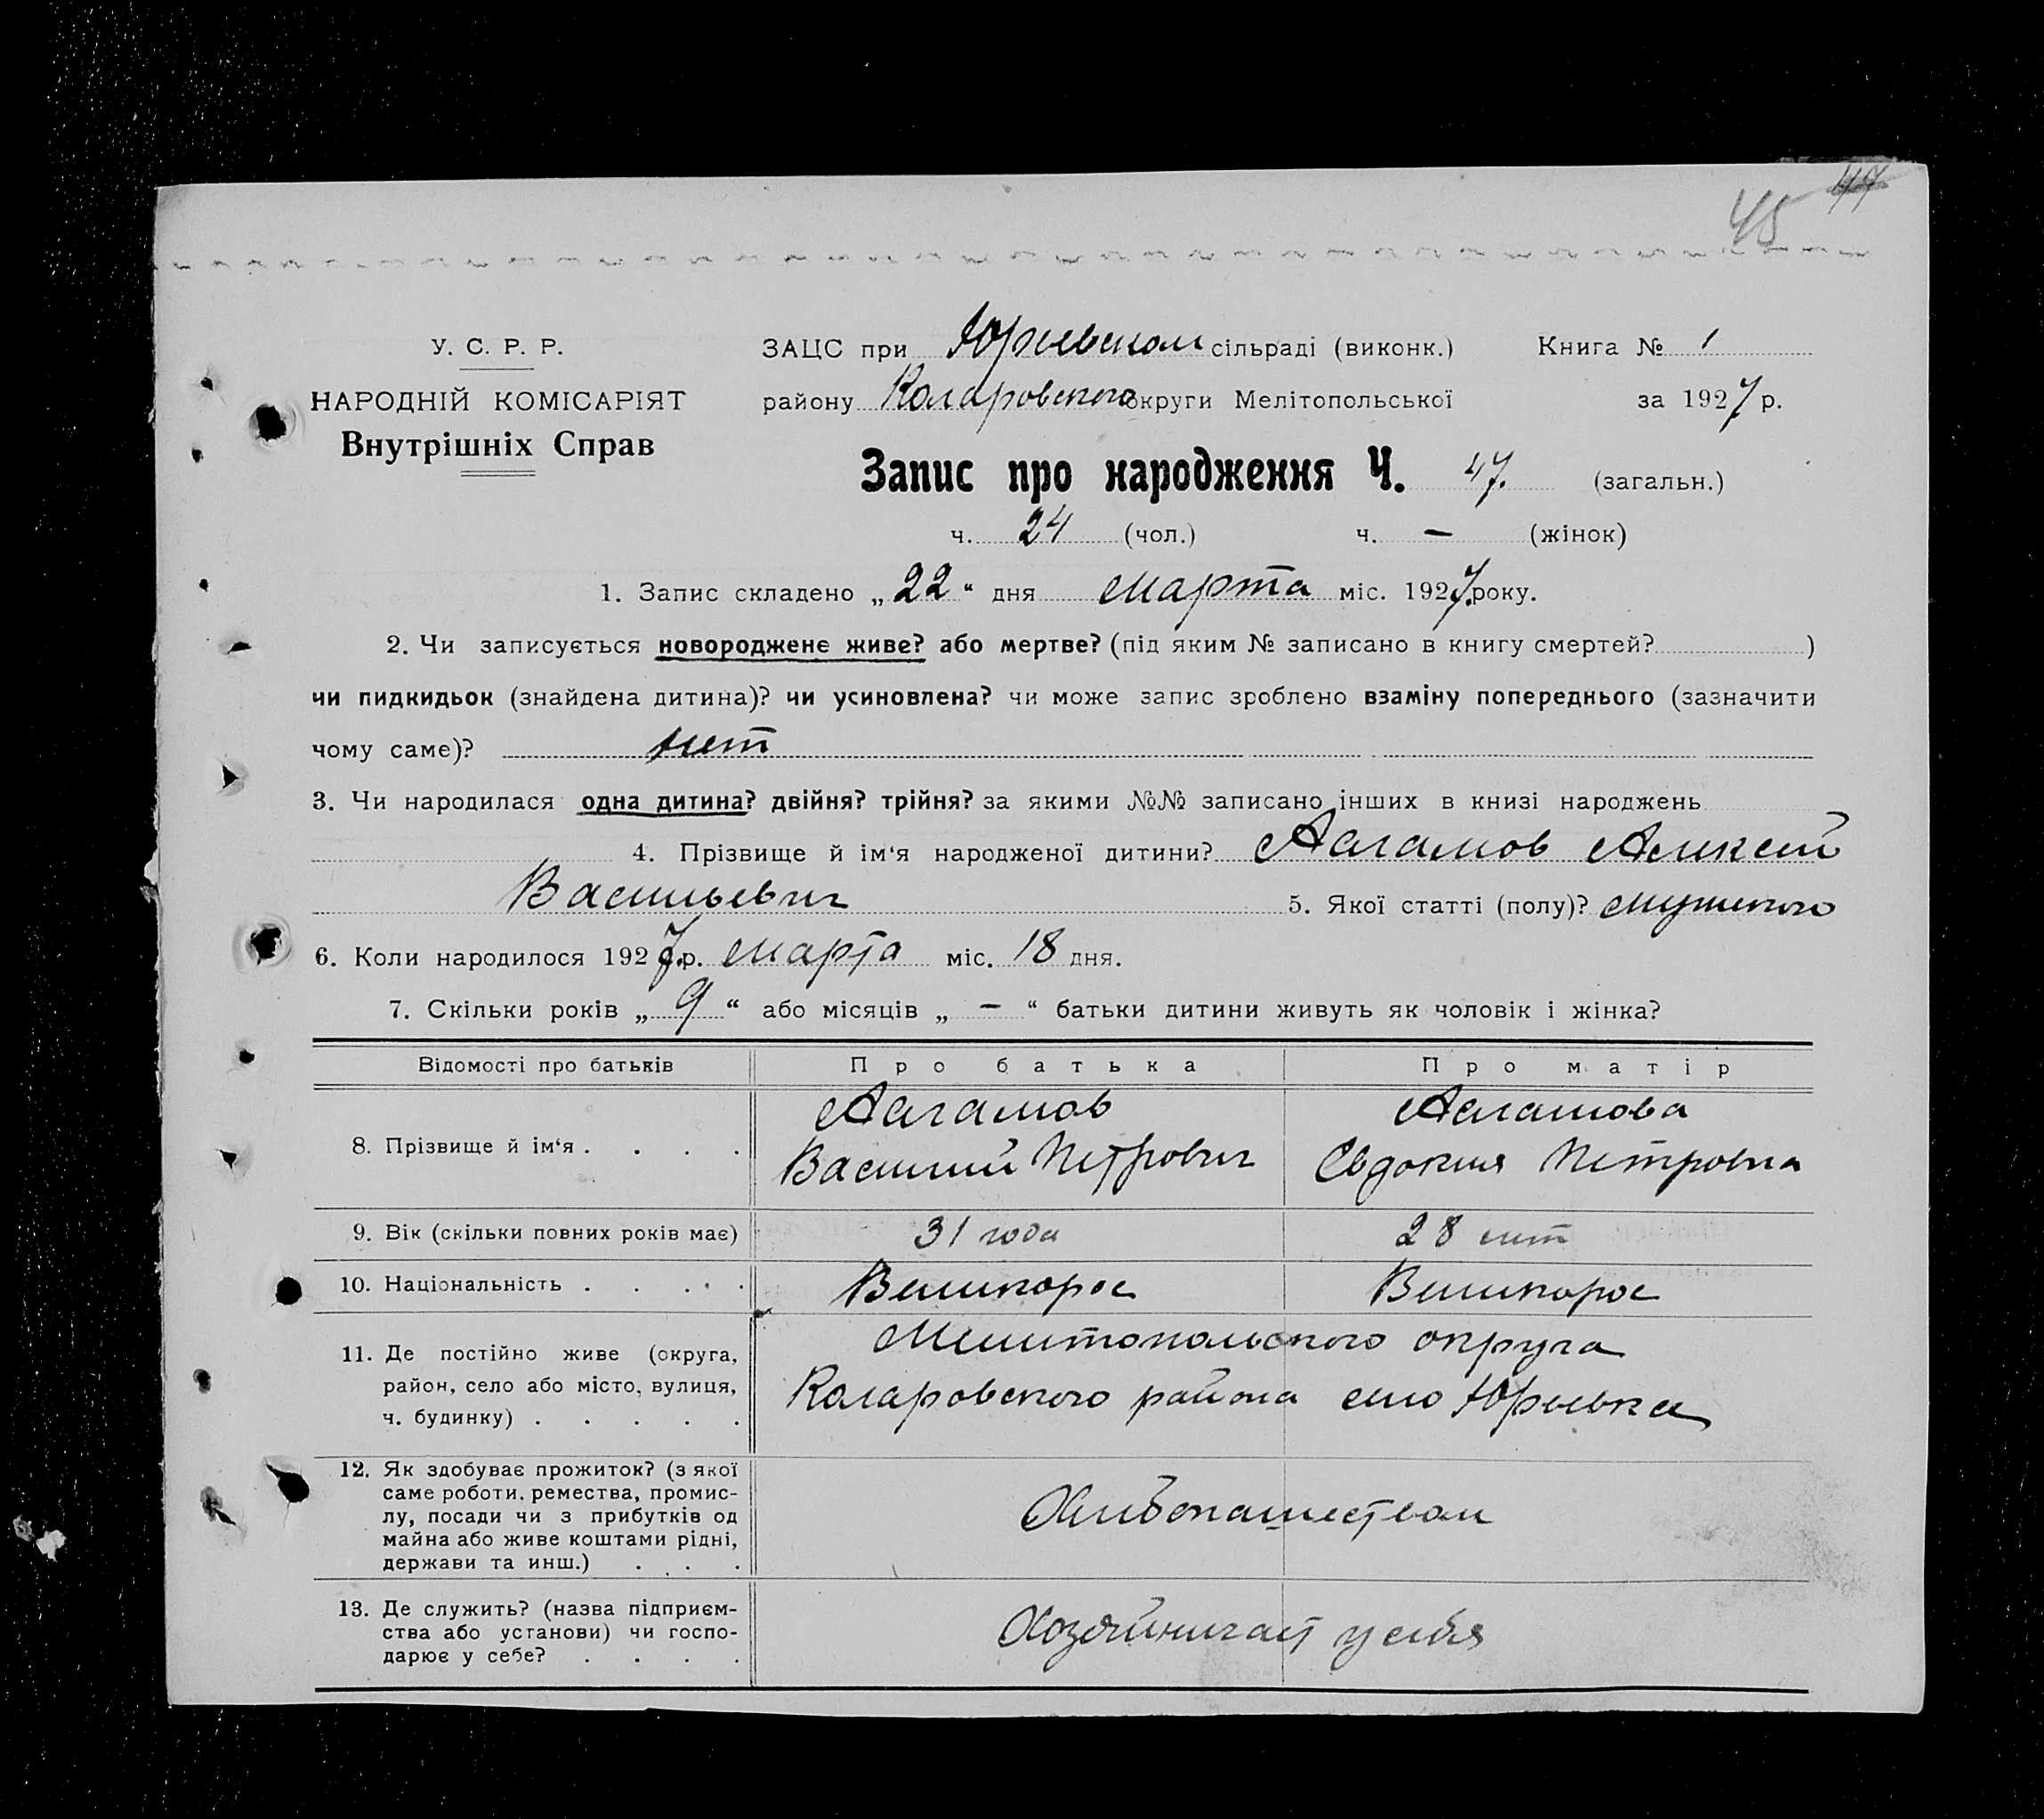 47
45
У. С. Р. Р.
НАРОДНІЙ КОМІСАРІЯТ
Внутрішніх Справ
ЗАЦС при Юрьевском сільраді (виконк.) Книга № 1
району Коларовского округи Мелітопольської за 1927 р.
Запис про народження Ч. 47. (загальн.)
ч. 24 (чол.) ч. — (жінок)
1. Запис складено „22“ дня марта міс. 1927 року.
2. Чи записується новороджене живе? або мертве? (під яким № записано в книгу смертей? )
чи пидкидьок (знайдена дитина)? чи усиновлена? чи може запис зроблено взаміну попереднього (зазначити
чому саме)? нет
3. Чи народилася одна дитина? двійня? трійня? за якими №№ записано інших в книзі народжень
4. Прізвище й ім‘я народженої дитини? Алексей
Васильевич 5. Якої статті (полу)? мужского
6. Коли народилося 1927 р. марта міс. 18 дня.
7. Скільки років „9“ або місяців „—“ батьки дитини живуть як чоловік і жінка?
Відомості про батьків Про батька Про матір
8. Прізвище й ім‘я . . . .
Василий Петрович Евдокия Петровна
9. Вік (скільки повних років має) 31 года 28 лет
10. Національність . . . . . Великорос Великорос
11. Де постійно живе (округа, район, село або місто, вулиця, ч. будинку) . . . . .
Мелитопольского округа
Коларовского района село Юрьевка
12. Як здобуває прожиток? (з якої
саме роботи, ремества, промис-
лу, посади чи з прибутків од
майна або живе коштами рідні,
держави та инш.) . . .
Хлебопашеством
13. Де служить? (назва підприєм-
ства або установи) чи госпо-
дарює у себе? . . . .
Хозяйничает у себя